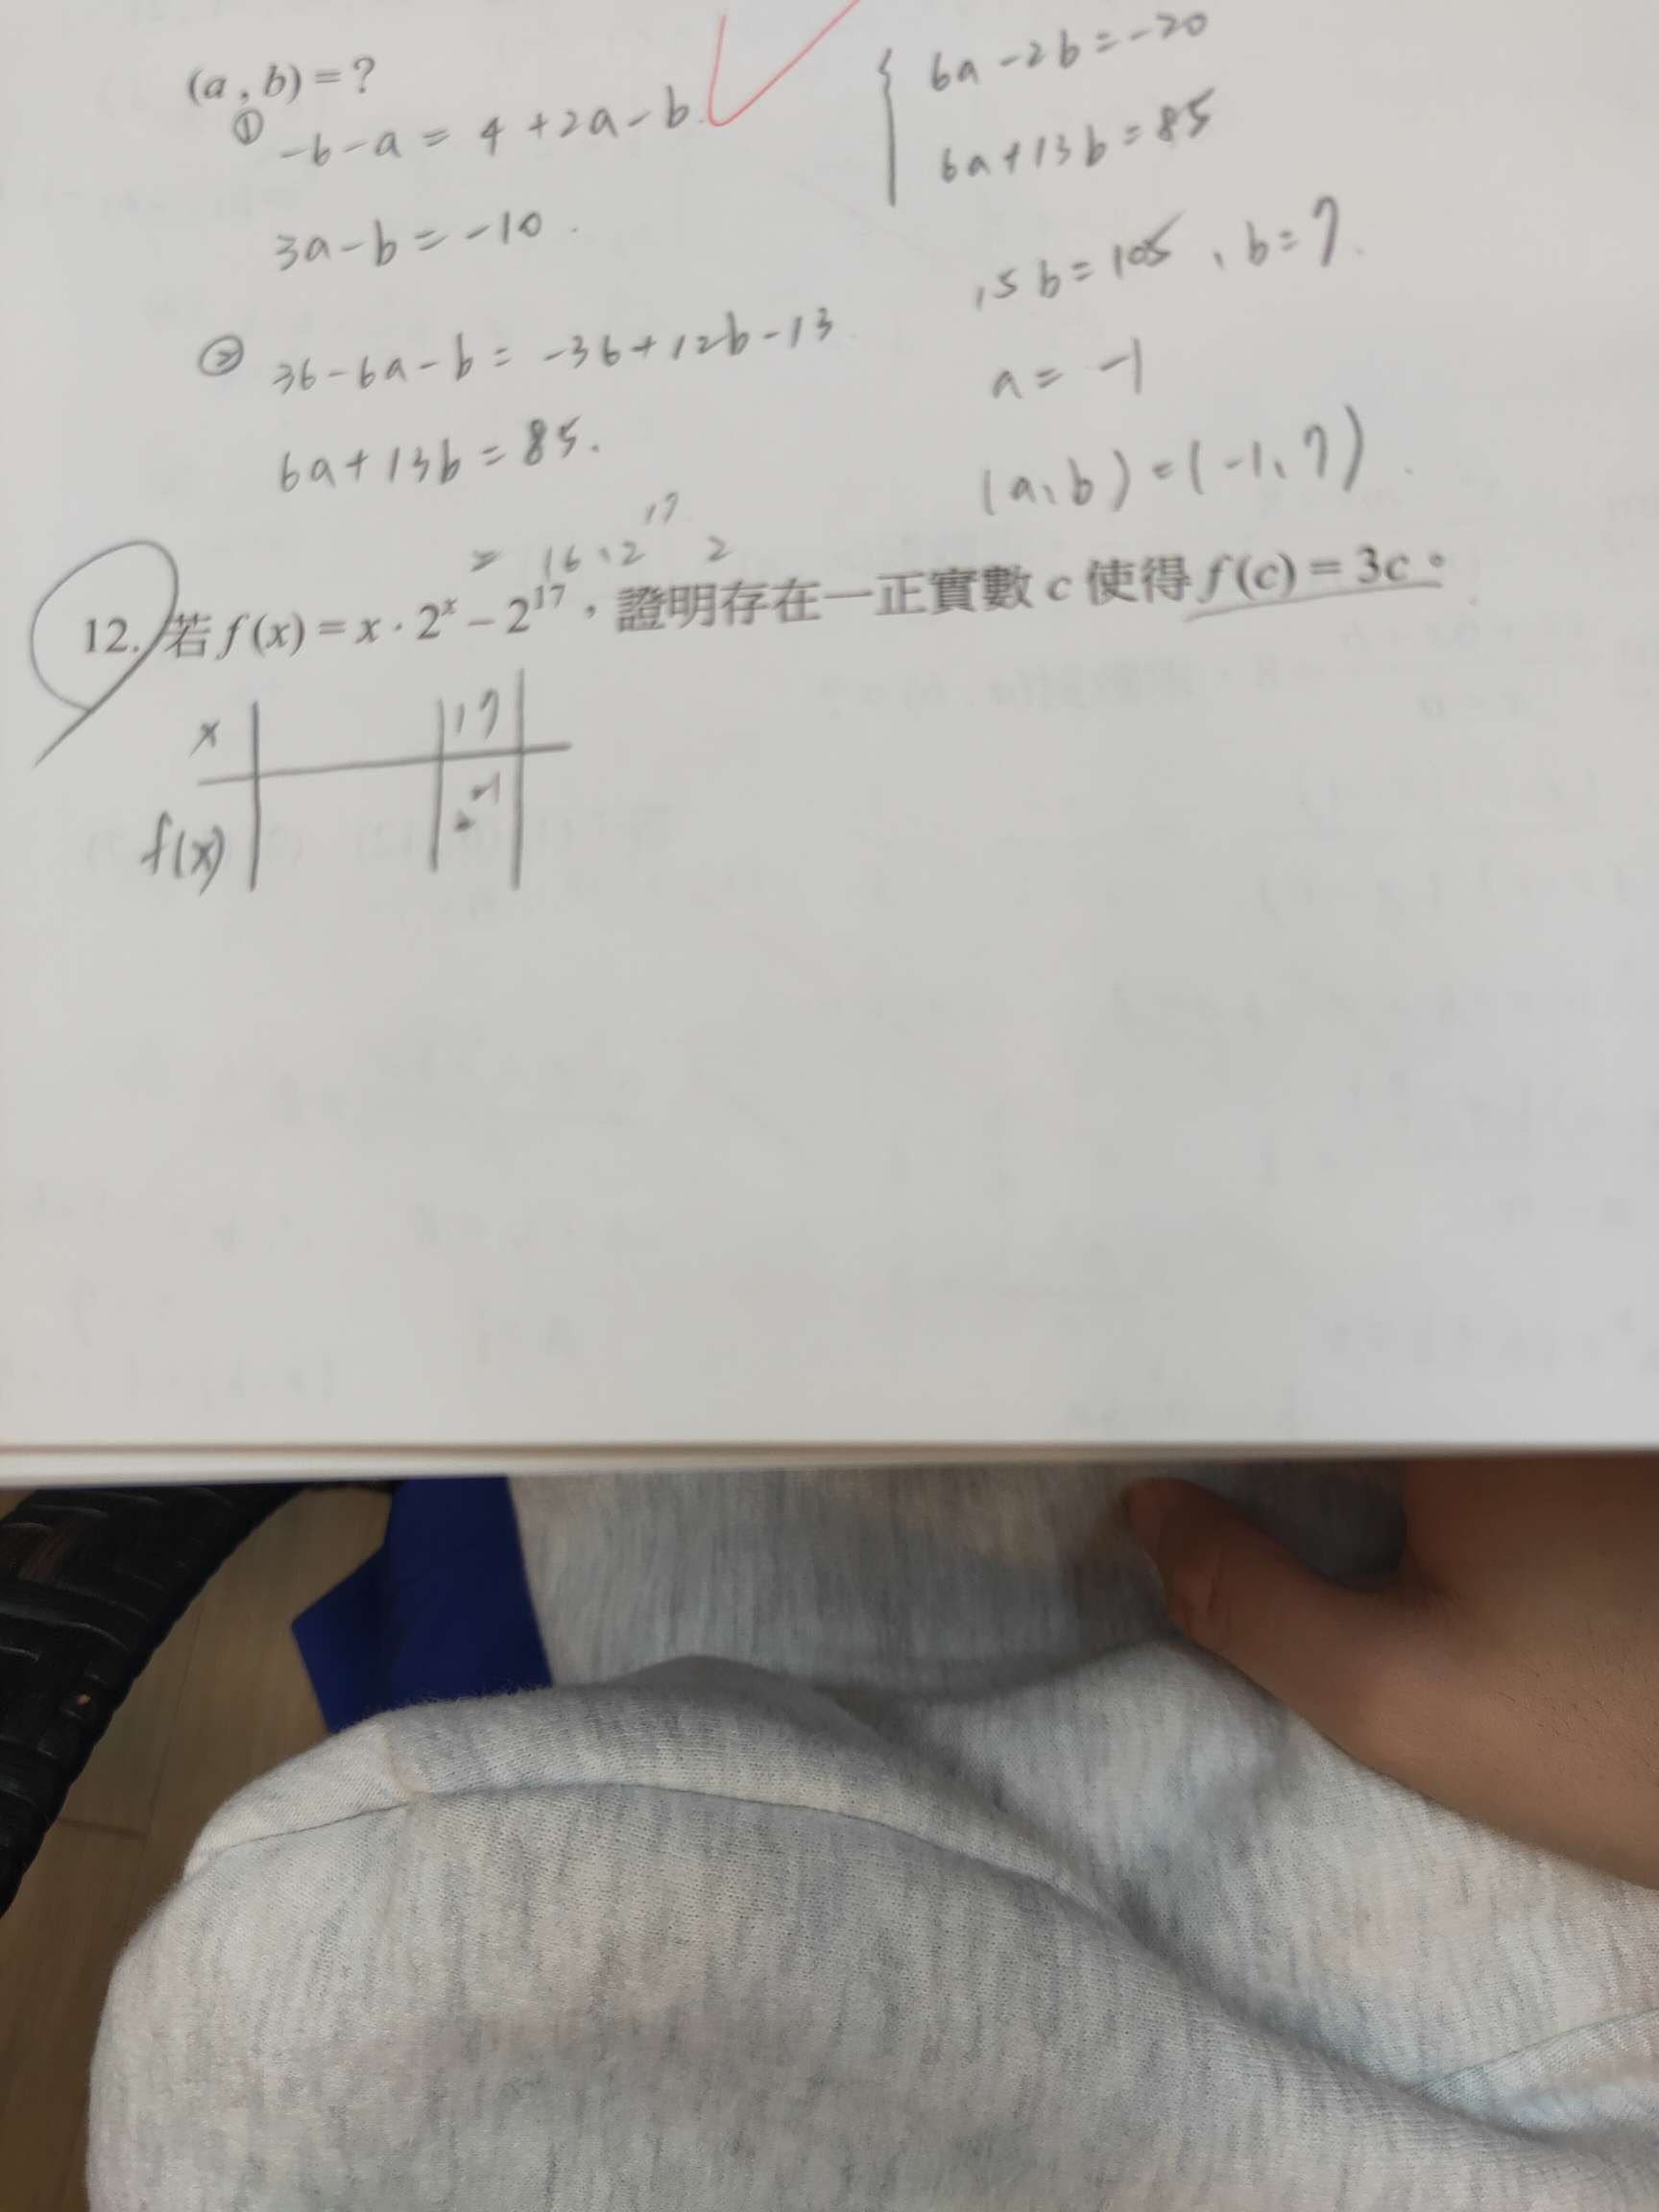 (a , b) = ?
① -b-a = 4+2a-b.
3a-b = -10.
② 36-6a-b = -36+12b-13
6a+13b = 85.
6a-2b = -20
6a+13b = 85
15b = 105、b=7.
a = -1
(a、b) = (-1、7).
= 16·2¹⁷ 2
12. 若 f(x) = x · 2ˣ − 2¹⁷,證明存在一正實數 c 使得 f(c) = 3c。
x 17
f(x)